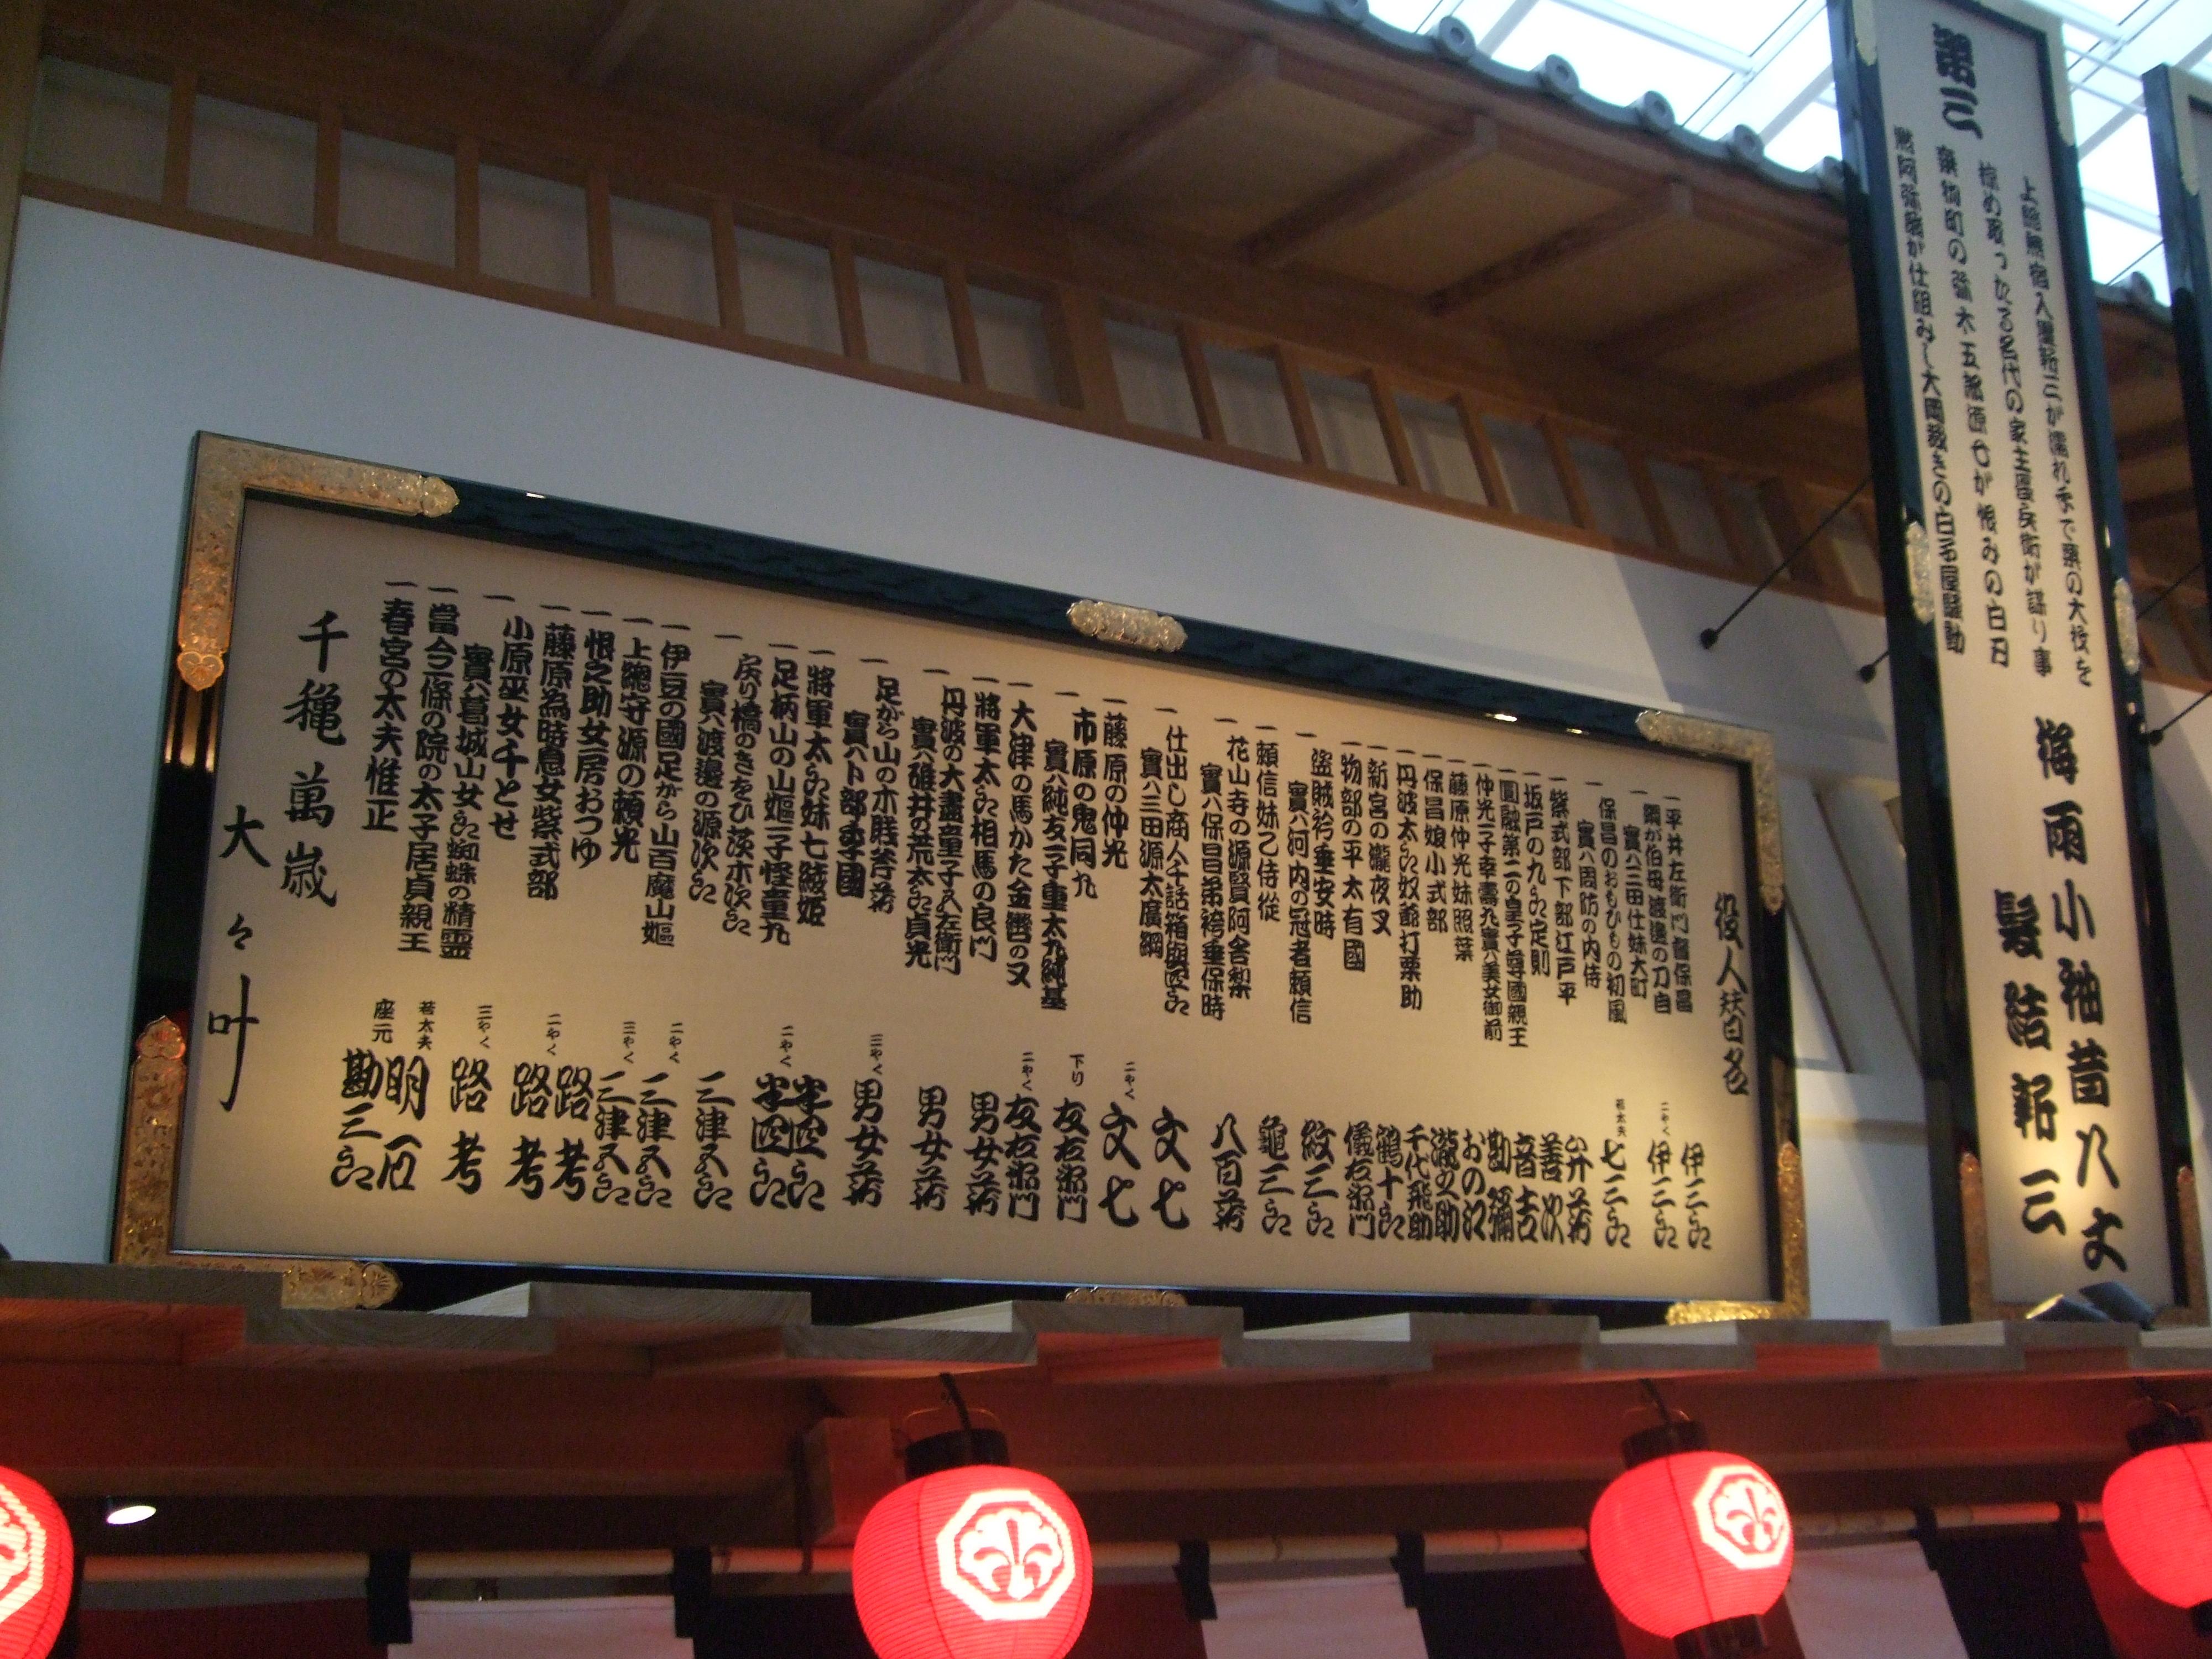 第三
上総無宿入墨新三が濡れ手で粟の大役を
棕め取つたる名代の家主長兵衛が謀り事
乗物町の弥太五郎源七が恨みの白刃
黙阿弥翁が仕組みし大岡裁きの白子屋騒動
梅雨小袖昔八丈
髪結新三
役人替名
一平井左衛門督保昌 伊三郎
一綱が伯母渡邉の刀自
實ハ三田仕妹大町 二やく 伊三郎
一保昌のおもひもの初風
實ハ周防の内侍 若太夫 七三郎
一紫式部下部江戸平 弁蔵
一坂戸の九郎定則 善次
一圓融第二の皇子尊國親王 音吉
一仲光一子幸壽丸實ハ美女御前 勘彌
一藤原仲光妹照葉 おの江
一保昌娘小式部 瀧之助
一丹波太郎奴爺打栗助 千代飛助
一新宮の瀧夜叉 鶴十郎
一物部の平太有國 儀右衛門
一盗賊袴垂安時
實ハ河内の冠者頼信 紋三郎
一頼信妹乙侍従 龜三郎
一花山寺の源賢阿舎梨
實ハ保昌弟袴垂保時 八百蔵
一仕出し商人千話箱與四郎
實ハ三田源太廣綱 文七
一藤原の仲光 二やく 文七
一市原の鬼同丸
實ハ純友一子重太丸純基 下り 友右衛門
一大津の馬かた金轡の又 二やく 友右衛門
一將軍太郎相馬の良門 男女蔵
一丹波の大盡童子久左衛門
實ハ碓井の荒太郎貞光 男女蔵
一足がら山の木樵斧蔵
實ハト部季國 三やく 男女蔵
一將軍太郎妹七綾姫 半四郎
一足柄山の山姫一子怪童丸 二やく 半四郎
一戻り橋のきをひ茨木次郎
實ハ渡邉の源次郎 三津五郎
一伊豆の國足がら山百魔山姫 二やく 三津五郎
一上總守源の頼光 三やく 三津五郎
一恨之助女房おつゆ 路考
一藤原為時息女紫式部 二やく 路考
一小原巫女千とせ
實ハ葛城山女郎蜘蛛の精霊 三やく 路考
一當今一條の院の太子居貞親王 若太夫 明石
一春宮の太夫惟正 座元 勘三郎
千穐萬歳
大々叶